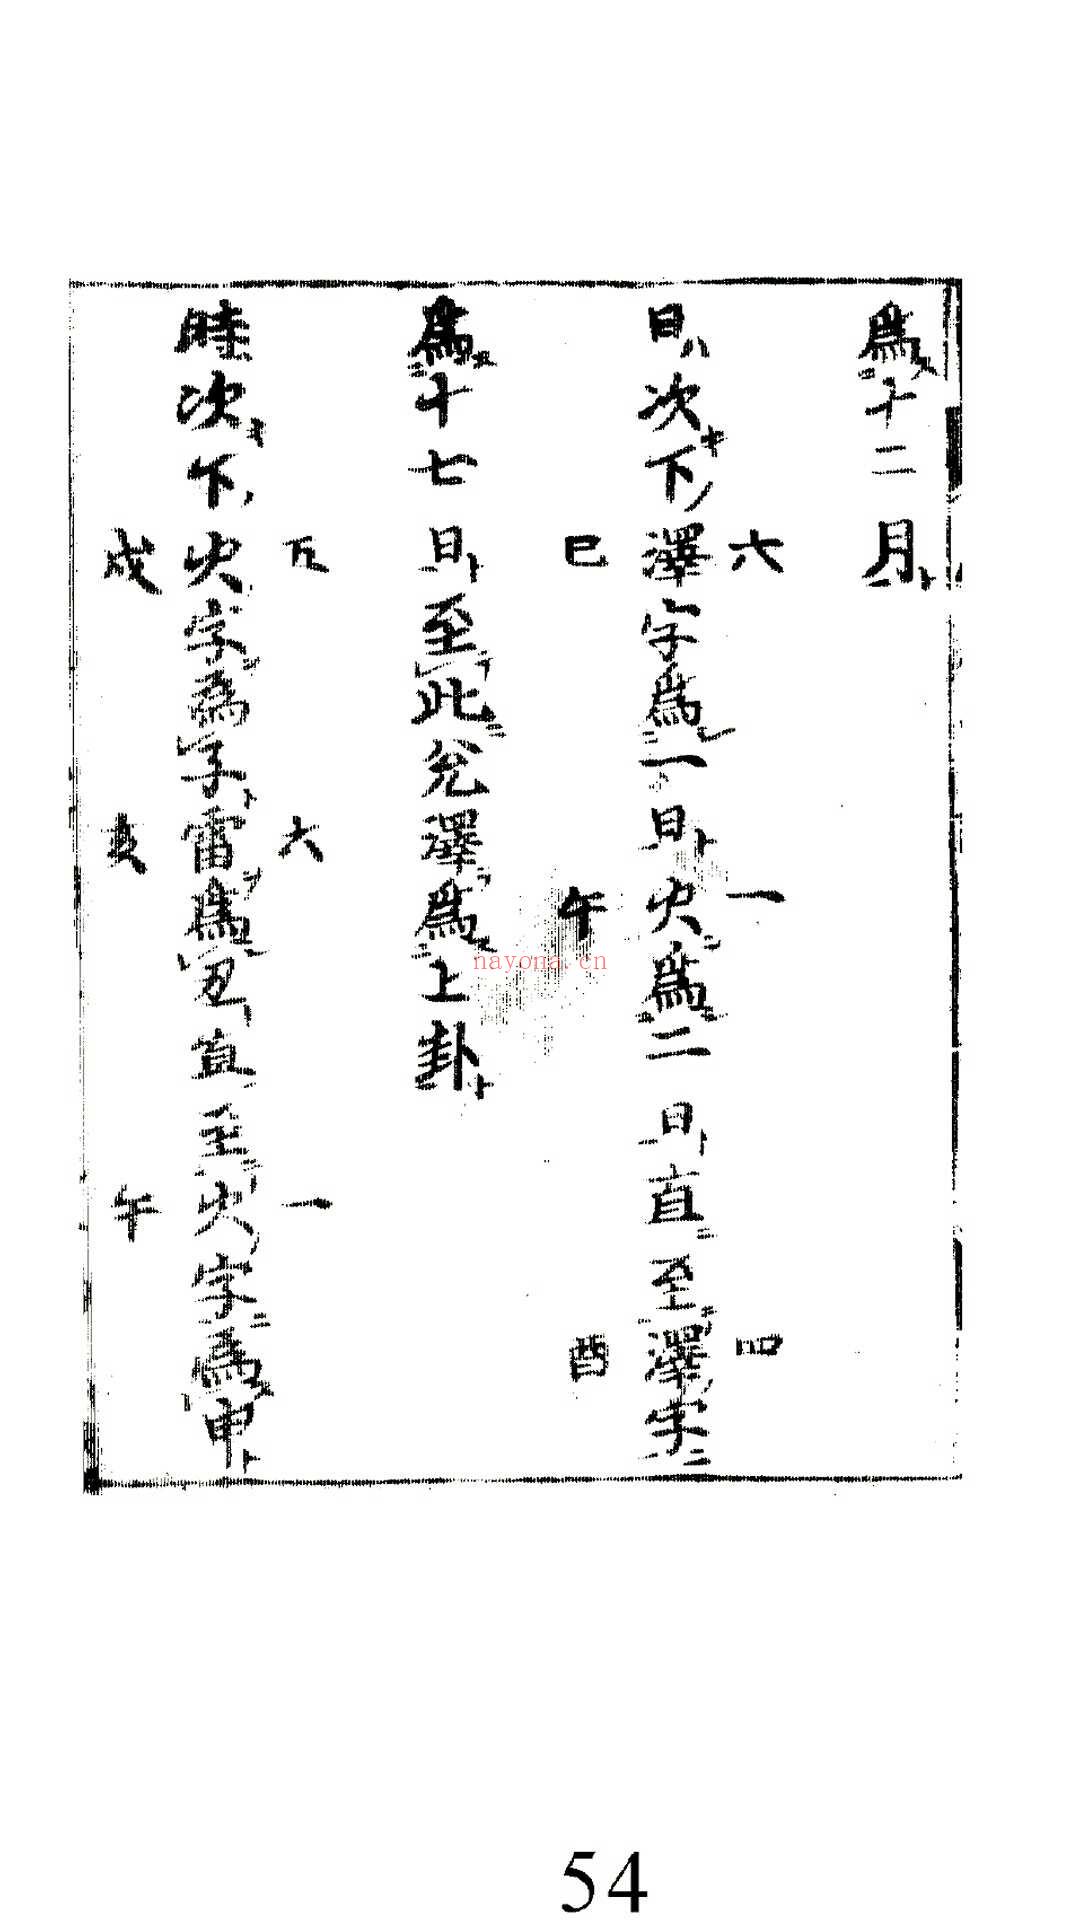 爲十二月
六 一 四
日次下澤字爲一日火爲二日直至澤字
巳 午 酉
爲十七日至此兌澤爲上卦
五 六 一
時次下火字爲子雷爲丑直至火字爲申
戌 亥 午
nayona.cn
54